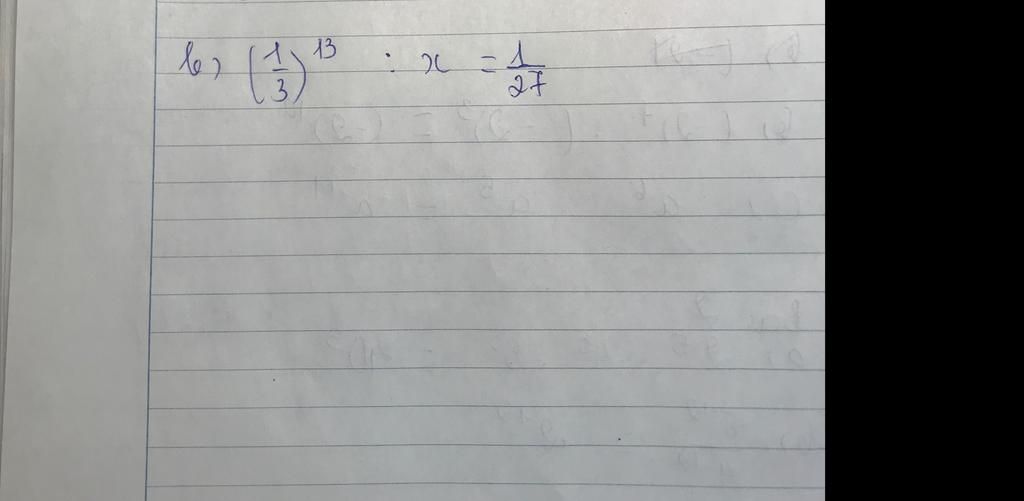 b) (1/3)^13 : x = 1/27